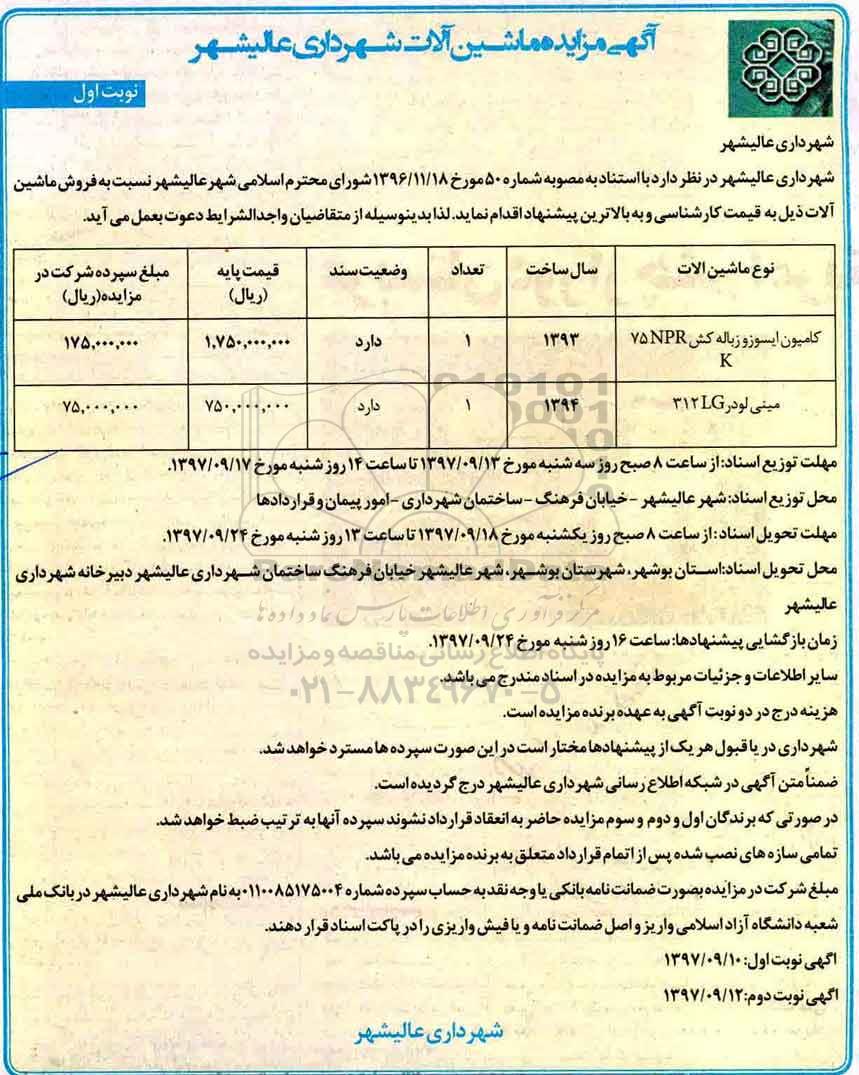 آگهی مزایده ماشین آلات شهرداری عالیشهر
نوبت اول
شهرداری عالیشهر
شهرداری عالیشهر در نظر دارد با استناد به مصوبه شماره ۵۰ مورخ ۱۳۹۶/۱۱/۱۸ شورای محترم اسلامی شهر عالیشهر نسبت به فروش ماشین
آلات ذیل به قیمت کارشناسی و به بالاترین پیشنهاد اقدام نماید. لذا بدینوسیله از متقاضیان واجدالشرایط دعوت بعمل می آید.
نوع ماشین الات سال ساخت تعداد وضعیت سند قیمت پایه (ریال) مبلغ سپرده شرکت در مزایده(ریال)
کامیون ایسوزو زباله کش ۷۵ NPR K ۱۳۹۳ ۱ دارد ۱,۷۵۰,۰۰۰,۰۰۰ ۱۷۵,۰۰۰,۰۰۰
مینی لودر ۳۱۲ LG ۱۳۹۴ ۱ دارد ۷۵۰,۰۰۰,۰۰۰ ۷۵,۰۰۰,۰۰۰
مهلت توزیع اسناد: از ساعت ۸ صبح روز سه شنبه مورخ ۱۳۹۷/۰۹/۱۳ تا ساعت ۱۴ روز شنبه مورخ ۱۳۹۷/۰۹/۱۷.
محل توزیع اسناد: شهر عالیشهر - خیابان فرهنگ - ساختمان شهرداری - امور پیمان و قراردادها
مهلت تحویل اسناد: از ساعت ۸ صبح روز یکشنبه مورخ ۱۳۹۷/۰۹/۱۸ تا ساعت ۱۳ روز شنبه مورخ ۱۳۹۷/۰۹/۲۴.
محل تحویل اسناد: استان بوشهر، شهرستان بوشهر، شهر عالیشهر خیابان فرهنگ ساختمان شهرداری عالیشهر دبیرخانه شهرداری
عالیشهر
مرکز فرآوری اطلاعات پارس نماد داده ها
زمان بازگشایی پیشنهادها: ساعت ۱۶ روز شنبه مورخ ۱۳۹۷/۰۹/۲۴.
پایگاه اطلاع رسانی مناقصه و مزایده
سایر اطلاعات و جزئیات مربوط به مزایده در اسناد مندرج می باشد.
۰۲۱-۸۸۳۴۹۶۷۰-۵
هزینه درج در دو نوبت آگهی به عهده برنده مزایده است.
شهرداری در یا قبول هر یک از پیشنهادها مختار است در این صورت سپرده ها مسترد خواهد شد.
ضمناً متن آگهی در شبکه اطلاع رسانی شهرداری عالیشهر درج گردیده است.
در صورتی که برندگان اول و دوم و سوم مزایده حاضر به انعقاد قرار داد نشوند سپرده آنها به ترتیب ضبط خواهد شد.
تمامی سازه های نصب شده پس از اتمام قرار داد متعلق به برنده مزایده می باشد.
مبلغ شرکت در مزایده بصورت ضمانت نامه بانکی یا وجه نقد به حساب سپرده شماره ۰۱۱۰۰۸۵۱۷۵۰۰۴ به نام شهرداری عالیشهر در بانک ملی
شعبه دانشگاه آزاد اسلامی واریز و اصل ضمانت نامه و یا فیش واریزی را در پاکت اسناد قرار دهند.
اگهی نوبت اول: ۱۳۹۷/۰۹/۱۰
اگهی نوبت دوم: ۱۳۹۷/۰۹/۱۲
شهرداری عالیشهر